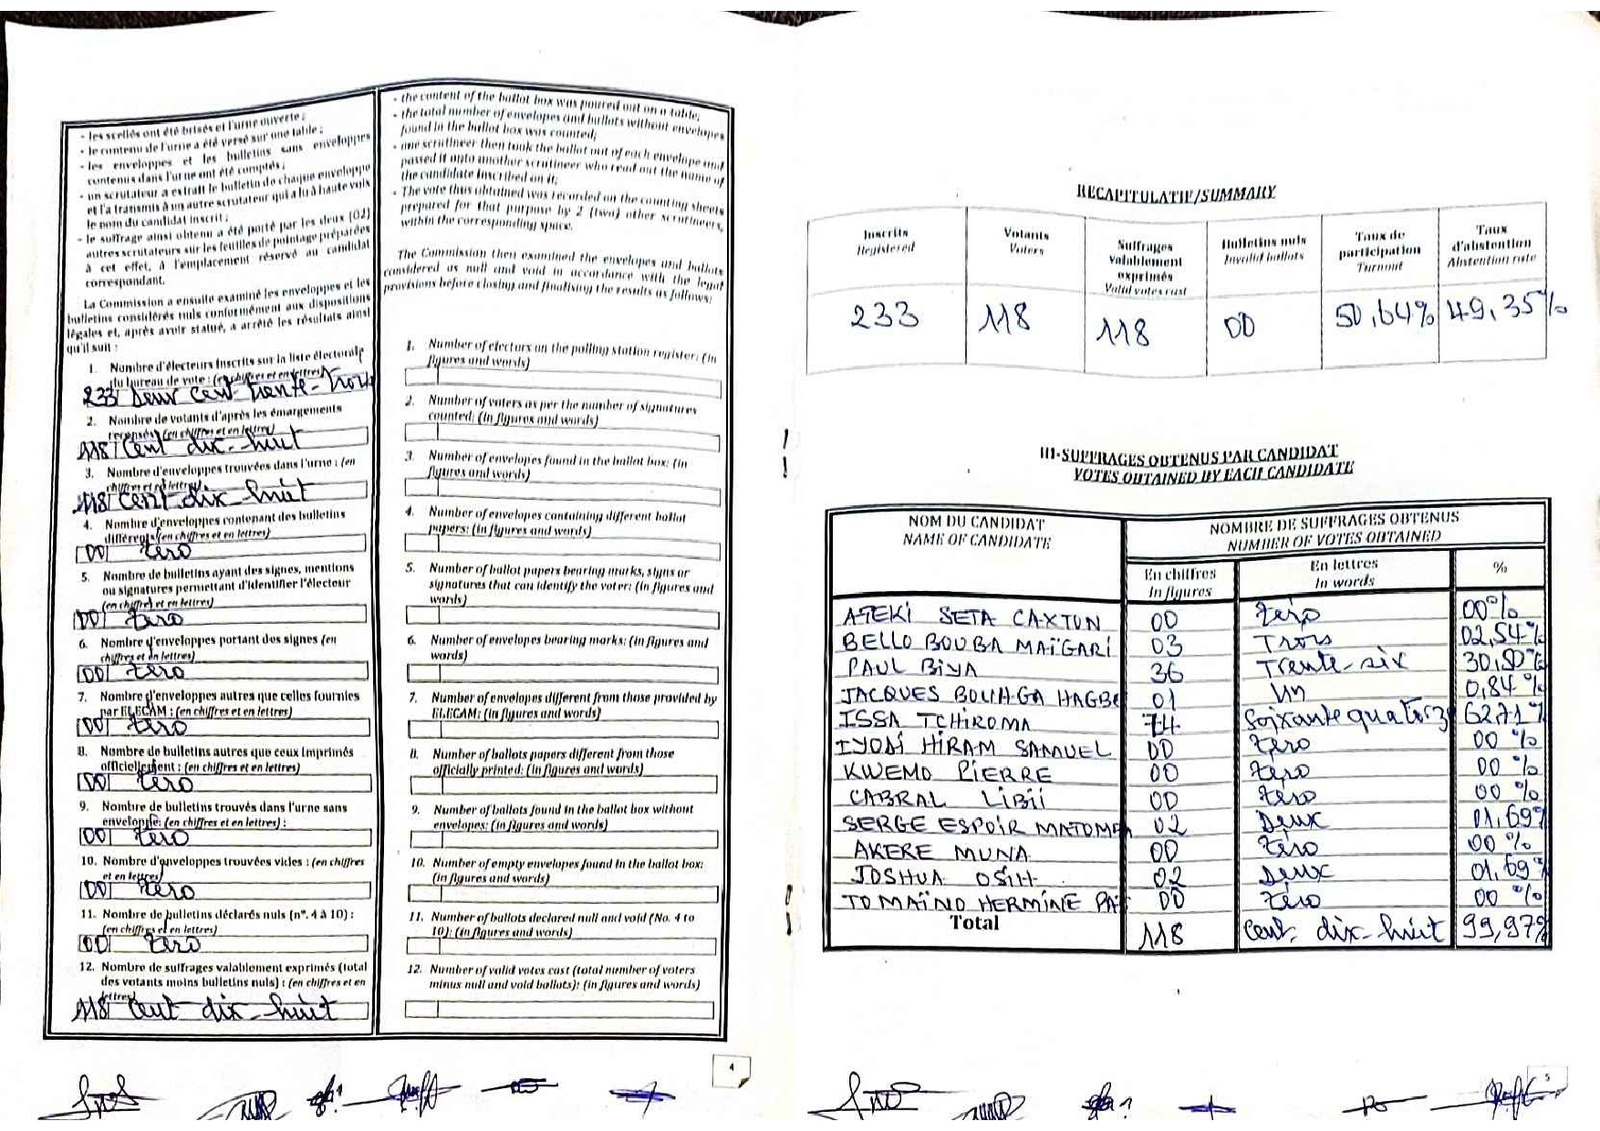 - les scellés ont été brisés et l'urne ouverte ;
- le contenu de l'urne a été versé sur une table ;
- les enveloppes et les bulletins sans enveloppes
contenus dans l'urne ont été comptés ;
- un scrutateur a extrait le bulletin de chaque enveloppe
et l'a transmis à un autre scrutateur qui a lu à haute voix
le nom du candidat inscrit ;
- le suffrage ainsi obtenu a été porté par les deux (02)
autres scrutateurs sur les feuilles de pointage préparées
à cet effet, à l'emplacement réservé au candidat
correspondant.
La Commission a ensuite examiné les enveloppes et les
bulletins considérés nuls conformément aux dispositions
légales et, après avoir statué, a arrêté les résultats ainsi
qu'il suit :
1. Nombre d'électeurs inscrits sur la liste électorale
du bureau de vote : (en chiffres et en lettres)
233 Deux cent trente-trois
2. Nombre de votants d'après les émargements
recensés (en chiffres et en lettres)
118 Cent dix-huit
3. Nombre d'enveloppes trouvées dans l'urne : (en
chiffres et en lettres)
118 Cent dix-huit
4. Nombre d'enveloppes contenant des bulletins
différents (en chiffres et en lettres)
00 zéro
5. Nombre de bulletins ayant des signes, mentions
ou signatures permettant d'identifier l'électeur
(en chiffres et en lettres)
00 zéro
6. Nombre d'enveloppes portant des signes (en
chiffres et en lettres)
00 zéro
7. Nombre d'enveloppes autres que celles fournies
par ELECAM : (en chiffres et en lettres)
00 zéro
8. Nombre de bulletins autres que ceux imprimés
officiellement : (en chiffres et en lettres)
00 zéro
9. Nombre de bulletins trouvés dans l'urne sans
enveloppe: (en chiffres et en lettres) :
00 zéro
10. Nombre d'enveloppes trouvées vides : (en chiffres
et en lettres)
00 zéro
11. Nombre de bulletins déclarés nuls (n°. 4 à 10) :
(en chiffres et en lettres)
00 zéro
12. Nombre de suffrages valablement exprimés (total
des votants moins bulletins nuls) : (en chiffres et en
lettres)
118 Cent dix-huit
- the content of the ballot box was poured out on a table;
- the total number of envelopes and ballots without envelopes
found in the ballot box was counted;
- one scrutineer then took the ballot out of each envelope and
passed it unto another scrutineer who read out the name of
the candidate inscribed on it;
- The vote thus obtained was recorded on the counting sheets
prepared for that purpose by 2 (two) other scrutineers,
within the corresponding space.
The Commission then examined the envelopes and ballots
considered as null and void in accordance with the legal
provisions before closing and finalising the results as follows:
1. Number of electors on the polling station register: (in
figures and words)
2. Number of voters as per the number of signatures
counted: (in figures and words)
3. Number of envelopes found in the ballot box: (in
figures and words)
4. Number of envelopes containing different ballot
papers: (in figures and words)
5. Number of ballot papers bearing marks, signs or
signatures that can identify the voter: (in figures and
words)
6. Number of envelopes bearing marks: (in figures and
words)
7. Number of envelopes different from those provided by
ELECAM: (in figures and words)
8. Number of ballots papers different from those
officially printed: (in figures and words)
9. Number of ballots found in the ballot box without
envelopes: (in figures and words)
10. Number of empty envelopes found in the ballot box:
(in figures and words)
11. Number of ballots declared null and void (No. 4 to
10): (in figures and words)
12. Number of valid votes cast (total number of voters
minus null and void ballots): (in figures and words)
4
RECAPITULATIF/SUMMARY
Inscrits Registered | Votants Voters | Suffrages valablement exprimés Valid votes cast | Bulletins nuls Invalid ballots | Taux de participation Turnout | Taux d'abstention Abstention rate
233 | 118 | 118 | 00 | 50,64% | 49,35%
III-SUFFRAGES OBTENUS PAR CANDIDAT
VOTES OBTAINED BY EACH CANDIDATE
NOM DU CANDIDAT NAME OF CANDIDATE | NOMBRE DE SUFFRAGES OBTENUS NUMBER OF VOTES OBTAINED
En chiffres In figures | En lettres In words | %
ATEKI SETA CAXTON 00 zéro 00%
BELLO BOUBA MAÏGARI 03 Trois 02,54%
PAUL BIYA 36 Trente-six 30,50%
JACQUES BOUHGA HAGBE 01 Un 0,84 %
ISSA TCHIROMA 74 Soixante quatorze 62,71%
IYODI HIRAM SAMUEL 00 zéro 00 %
KWEMO PIERRE 00 zéro 00 %
CABRAL LIBII 00 zéro 00 %
SERGE ESPOIR MATOMBA 02 Deux 01,69%
AKERE MUNA 00 zéro 00 %
JOSHUA OSIH 02 Deux 01,69%
TOMAÏNO HERMINE PA 00 zéro 00 %
Total 118 Cent dix-huit 99,97%
5